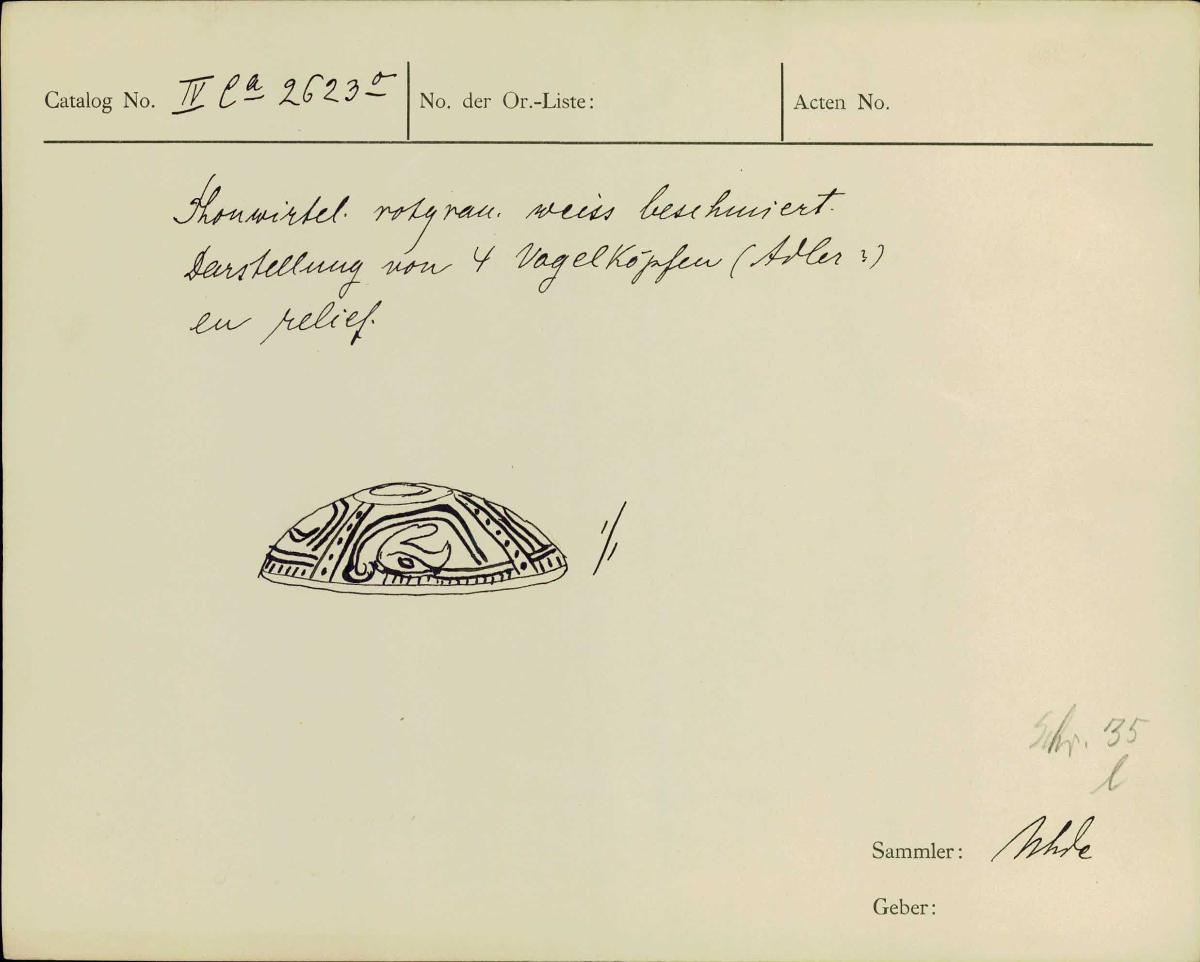 Catalog No. IV Ca 2623 a
No. der Or.-Liste:
Acten No.
Thonwirtel. rotgrau. weiss beschmiert.
Darstellung von 4 Vogelköpfen (Adler?)
en relief.
1/1
Schr. 35
l
Sammler: Uhde
Geber: